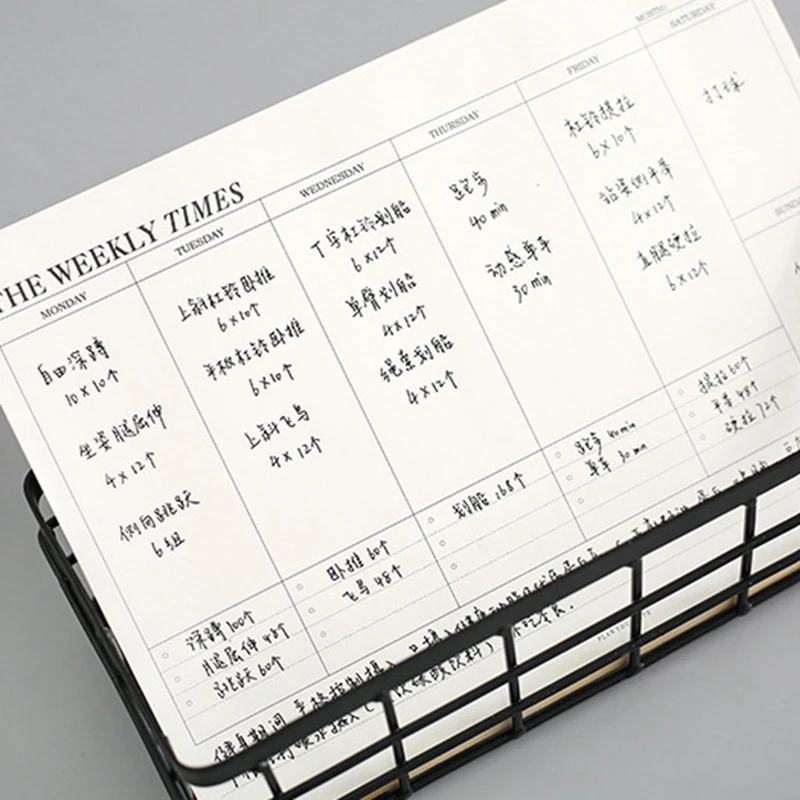 MONTH:
THE WEEKLY TIMES
MONDAY
自由深蹲
10×10个
坐姿腿屈伸
4×12个
侧向跳跃
6组
深蹲100个
腿屈伸48个
跳跃60个
TUESDAY
上斜杠铃卧推
6×10个
平板杠铃卧推
6×10个
上斜飞鸟
4×12个
卧推60个
飞鸟48个
WEDNESDAY
T字杠铃划船
6×12个
单臂划船
4×12个
绳索划船
4×12个
划船168个
THURSDAY
跑步
40 min
动感单车
30 min
跑步40min
单车30min
FRIDAY
杠铃提拉
6×10个
站姿侧平举
4×12个
直腿硬拉
6×12个
提拉60个
平举48个
硬拉72个
SATURDAY
打球
SUND
健身期间 严格控制摄入